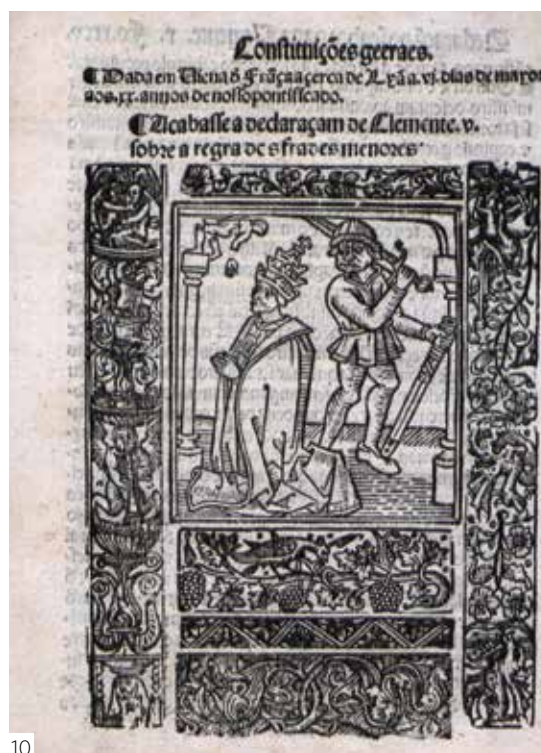 Constituições geeraes.
¶ Dada em Uiena ð Frãça açerca de Lxã a. vj. dias de mayo
aos. xx. annos de nosso pontificado.
¶ Acabasse a declaraçam de Clemente. v.
sobre a regra de s frades menores
10